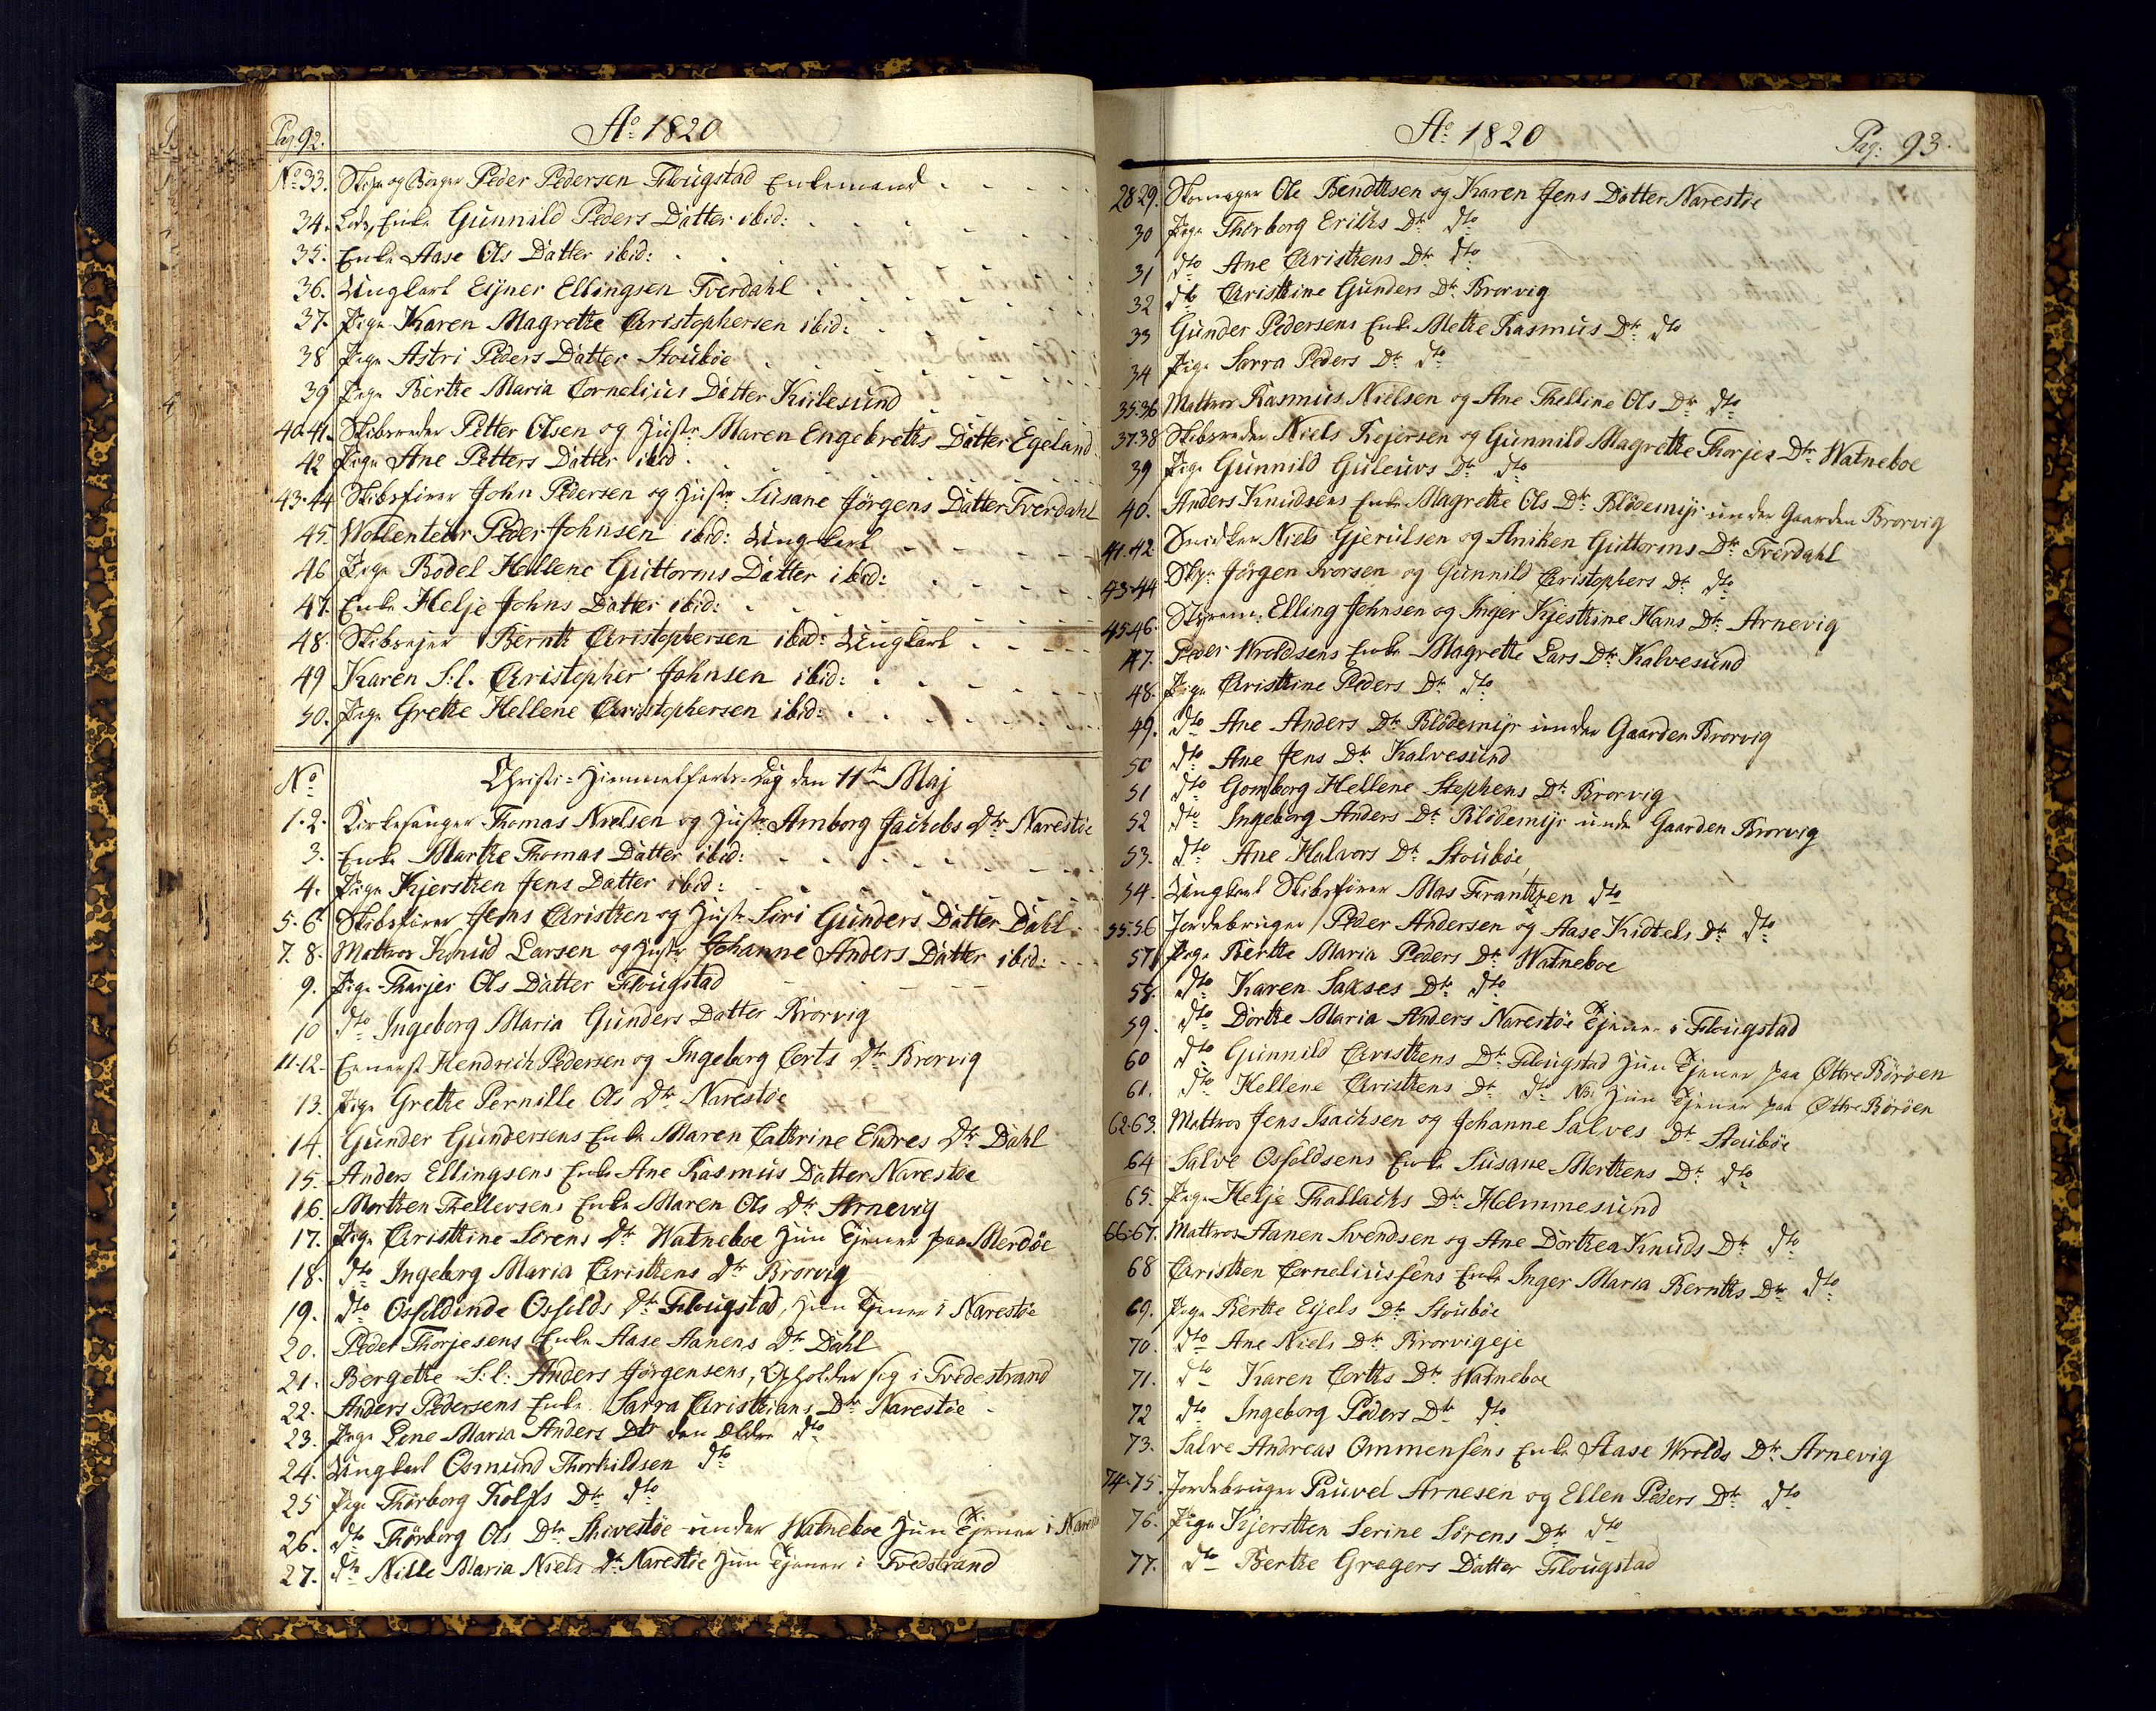 Pag. 92.
Ao 1820
No 33. Skipr og Borger Peder Pedersen Flougstad Enkemand
34. Lods Enke Gunnild Peders Datter ibid:
35. Enke Aase Ols Datter ibid:
36. Ungkarl Eijner Ellingsen Tverdahl
37. Pige Karen Magrethe Christophersen ibid:
38 Pige Astri Peders Datter Stoubøe
39 Pige Berthe Maria Cornelius Datter Kirlesund
40-41. Skibsreder Petter Olsen og Hustr Maren Engebreths Datter Egeland
42 Pige Ane Petters Datter ibid
43-44 Skibsfører John Pedersen og Hustr Susane Jørgens Datter Tverdahl
45. Wollenteur Peder Johnsen ibid: Ungkarl
46 Pige Bodel Hellene Guttorms Datter ibid:
47. Enke Helje Johns Datter ibid:
48. Skibsejer Bernth Christophersen ibid: Ungkarl
49 Karen S:l. Christopher Johnsen ibid:
50. Pige Grethe Hellene Christophersen ibid:
No Christi-Himmelfarts-Dag den 11te Maj
1.2. Kirkesanger Thomas Nielsen og Hustr Amborg Jachobs Dtr Narestøe
3. Enke Marthe Thomas Datter ibid:
4. Pige Kjersthen Jens Datter ibid:
5.6 Skibsfører Jens Christhen og Hustr Siri Gunders Datter Dahl
7.8. Mattros Knud Larsen og Hustr Johanne Anders Datter ibid:
9. Pige Thorjer Ols Datter Flougstad
10 dto Ingeborg Maria Gunders Datter Brorvig
11-12. Hendrich Pedersen og Ingeborg Corts Dtr Brorvig
13. Pige Grethe Pernille Ols Dtr Narestøe
14. Gunder Gundersens Enke Maren Cathrine Endres Dtr Dahl
15. Anders Ellingsens Enke Ane Rasmus Datter Narestøe
16. Morthen Thellevsens Enke Maren Ols Dtr Arnevig
17. Pige Christhine Sørens Dtr Watneboe Hun Tjener paa Merdøe
18. dto Ingeborg Maria Christhens Dtr Brorvig
19. dto Osfoldinde Osfolds Dtr Flougstad, Hun Tjener i Narestøe
20. Peder Thorjesens Enke Aase Aanens Dtr Dahl
21. Bergethe S:l: Anders Jørgensens, Opholder sig i Tvedestrand
22. Anders Pedersens Enke Sarra Christhians Dtr Narestøe
23. Pige Lene Maria Anders Dtr den Ældre dto
24. Ungkarl Osmund Thorkildsen dto
25 Pige Thorborg Rolfs Dtr dto
26. dto Thorborg Ols Dtr under Watneboe Hun Tjener i
27. dto Nille Maria Niels Dtr Narestøe Hun Tjener i Tvedstrand
Ao 1820
Pag: 93.
28 29. Skomager Ole Bendthsen og Karen Jens Datter Narestøe
30 Pige Thorborg Erichs Dtr dto
31 dto Ane Christhens Dtr dto
32 dto Christhine Gunders Dtr Brorvig
33 Gunder Pedersens Enke Methe Rasmus Dtr dto
34 Pige Sarra Peders Dtr dto
35.36 Mattros Rasmus Nielsen og Ane Thelline Ols Dtr dto
37.38 Skibsreder Niels Rejersen og Gunnild Magrethe Thorjes Dtr Watneboe
39 Pige Gunnild Guleuvs Dtr dto
40. Anders Knudsens Enke Magrethe Ols Dtr Blødemijr under Gaarden Brorvig
41.42 Snidker Niels Gjerulsen og Aniken Guttorms Dtr Tverdahl
43-44 Skipr Jørgen Iversen og Gunnild Christophers Dtr dto
45.46. Styrm: Elling Johnsen og Inger Kjesthine Hans Dtr Arnevig
47. Peder Wroldsens Enke Magrethe Lars Dtr Kalvesund
48. Pige Christhine Peders Dtr dto
49. dto Ane Anders Dtr Blødemijr under Gaarden Brorvig
50 dto Ane Jens Dtr Kalvesund
51 dto Gomborg Hellene Stephens Dtr Brorvig
52 dto Ingeborg Anders Dtr Blødemijr unde Gaarden Brorvig
53. dto Ane Halvors Dtr Stoubøe
54. Ungkarl Skibsfører Mas Franthzen dto
55.56 Jordebruger Peder Andersen og Aase Kidtels Dtr dto
57 Pige Berthe Maria Peders Dtr Watneboe
58. dto Karen Saxses Dtr dto
59. dto Dorthe Maria Anders Narestøe Tjener i Flougstad
60 dto Gunnild Christhens Dtr Flougstad Hun Tjener paa Øttre Børøen
61. dto Hellene Christhens Dtr dto NB: Hun Tjener paa Øttre Børøen
62-63. Mattros Jens Isachsen og Johanne Salves Dtr Stoubøe
64 Salve Osfoldsens Enke Susane Morthens Dtr dto
65. Pige Helje Thallachs Dtr Helmmesund
66-67. Mattros Aanen Svendsen og Ane Dorthea Knuds Dtr dto
68 Christhen Corneliussens Enke Inger Maria Bernths Dtr dto
69. Pige Berthe Eijels Dtr Stoubøe
70. dto Ane Niels Dtr Brorvigeje
71. dto Karen Corths Dtr Watneboe
72 dto Ingeborg Peders Dtr dto
73. Salve Andreas Ommensens Enke Aase Wrolds Dtr Arnevig
74-75. Jordebruger Pauvel Arnesen og Ellen Peders Dtr dto
76. Pige Kjersthen Serine Sørens Dtr dto
77. dto Berthe Gregers Datter Flougstad